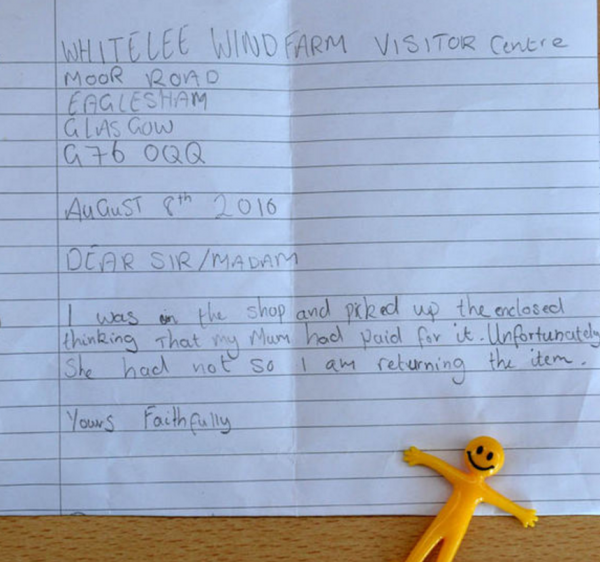 WHITELEE WINDFARM VISITOR Centre
MOOR ROAD
EAGLESHAM
GLASGOW
G76 0QQ
AUGUST 8th 2016
DEAR SIR/MADAM
I was in the shop and picked up the enclosed
thinking That my Mum had paid for it. Unfortunately
She had not so I am returning the item.
Yours Faithfully